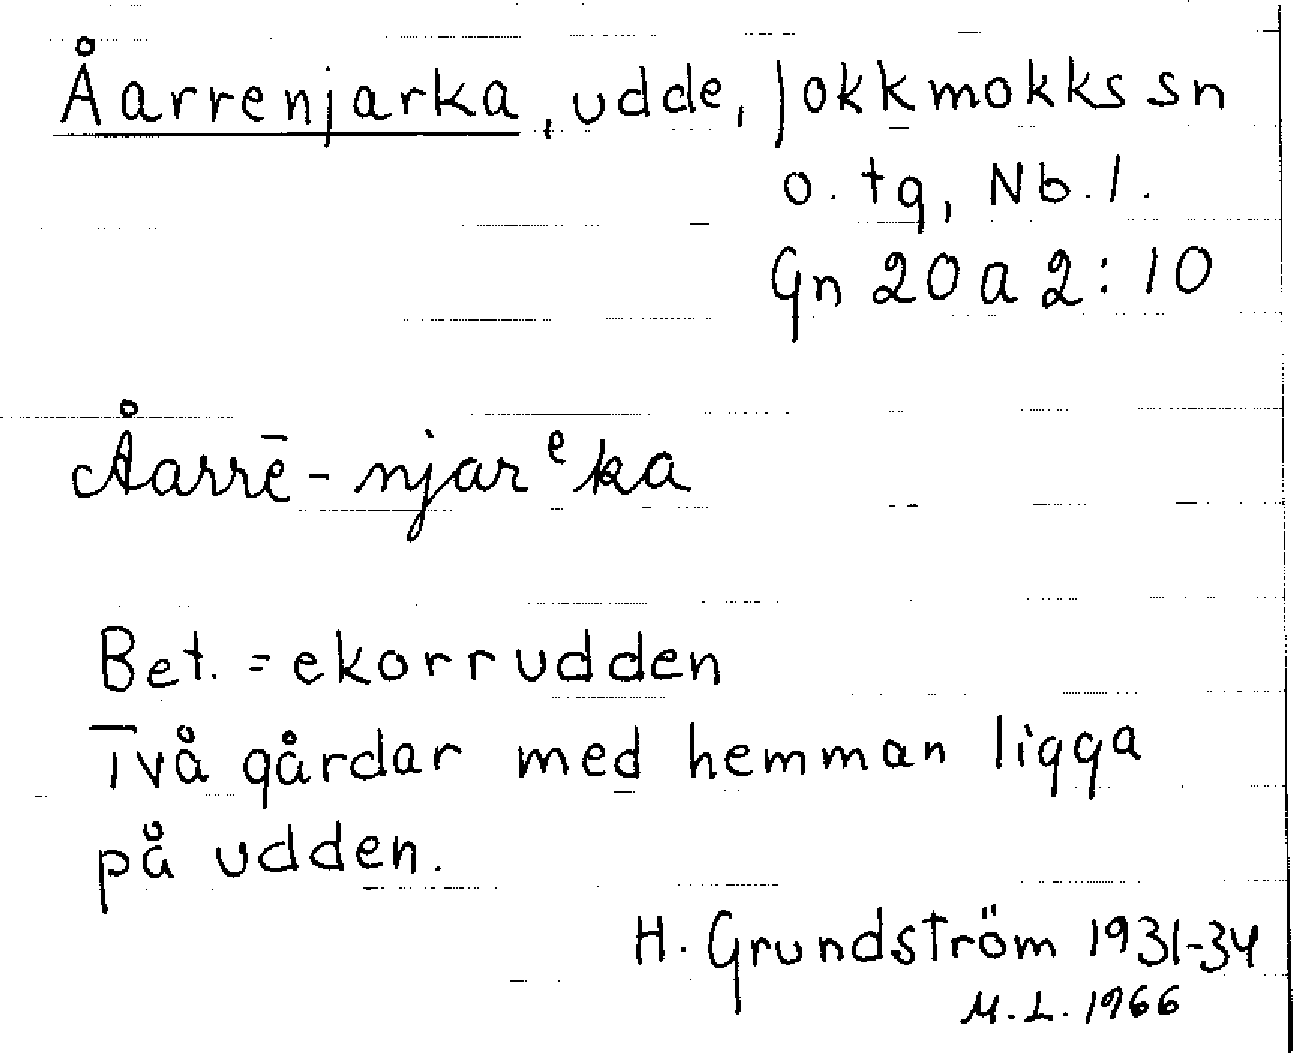 Åarrenjarka, udde, Jokkmokks sn
o. tg, Nb. l.
Gn 20 a 2:10
Åarrē-njarᵉka
Bet. = ekorrudden
Två gårdar med hemman ligga
på udden.
H. Grundström 1931-34
M. L. 1966